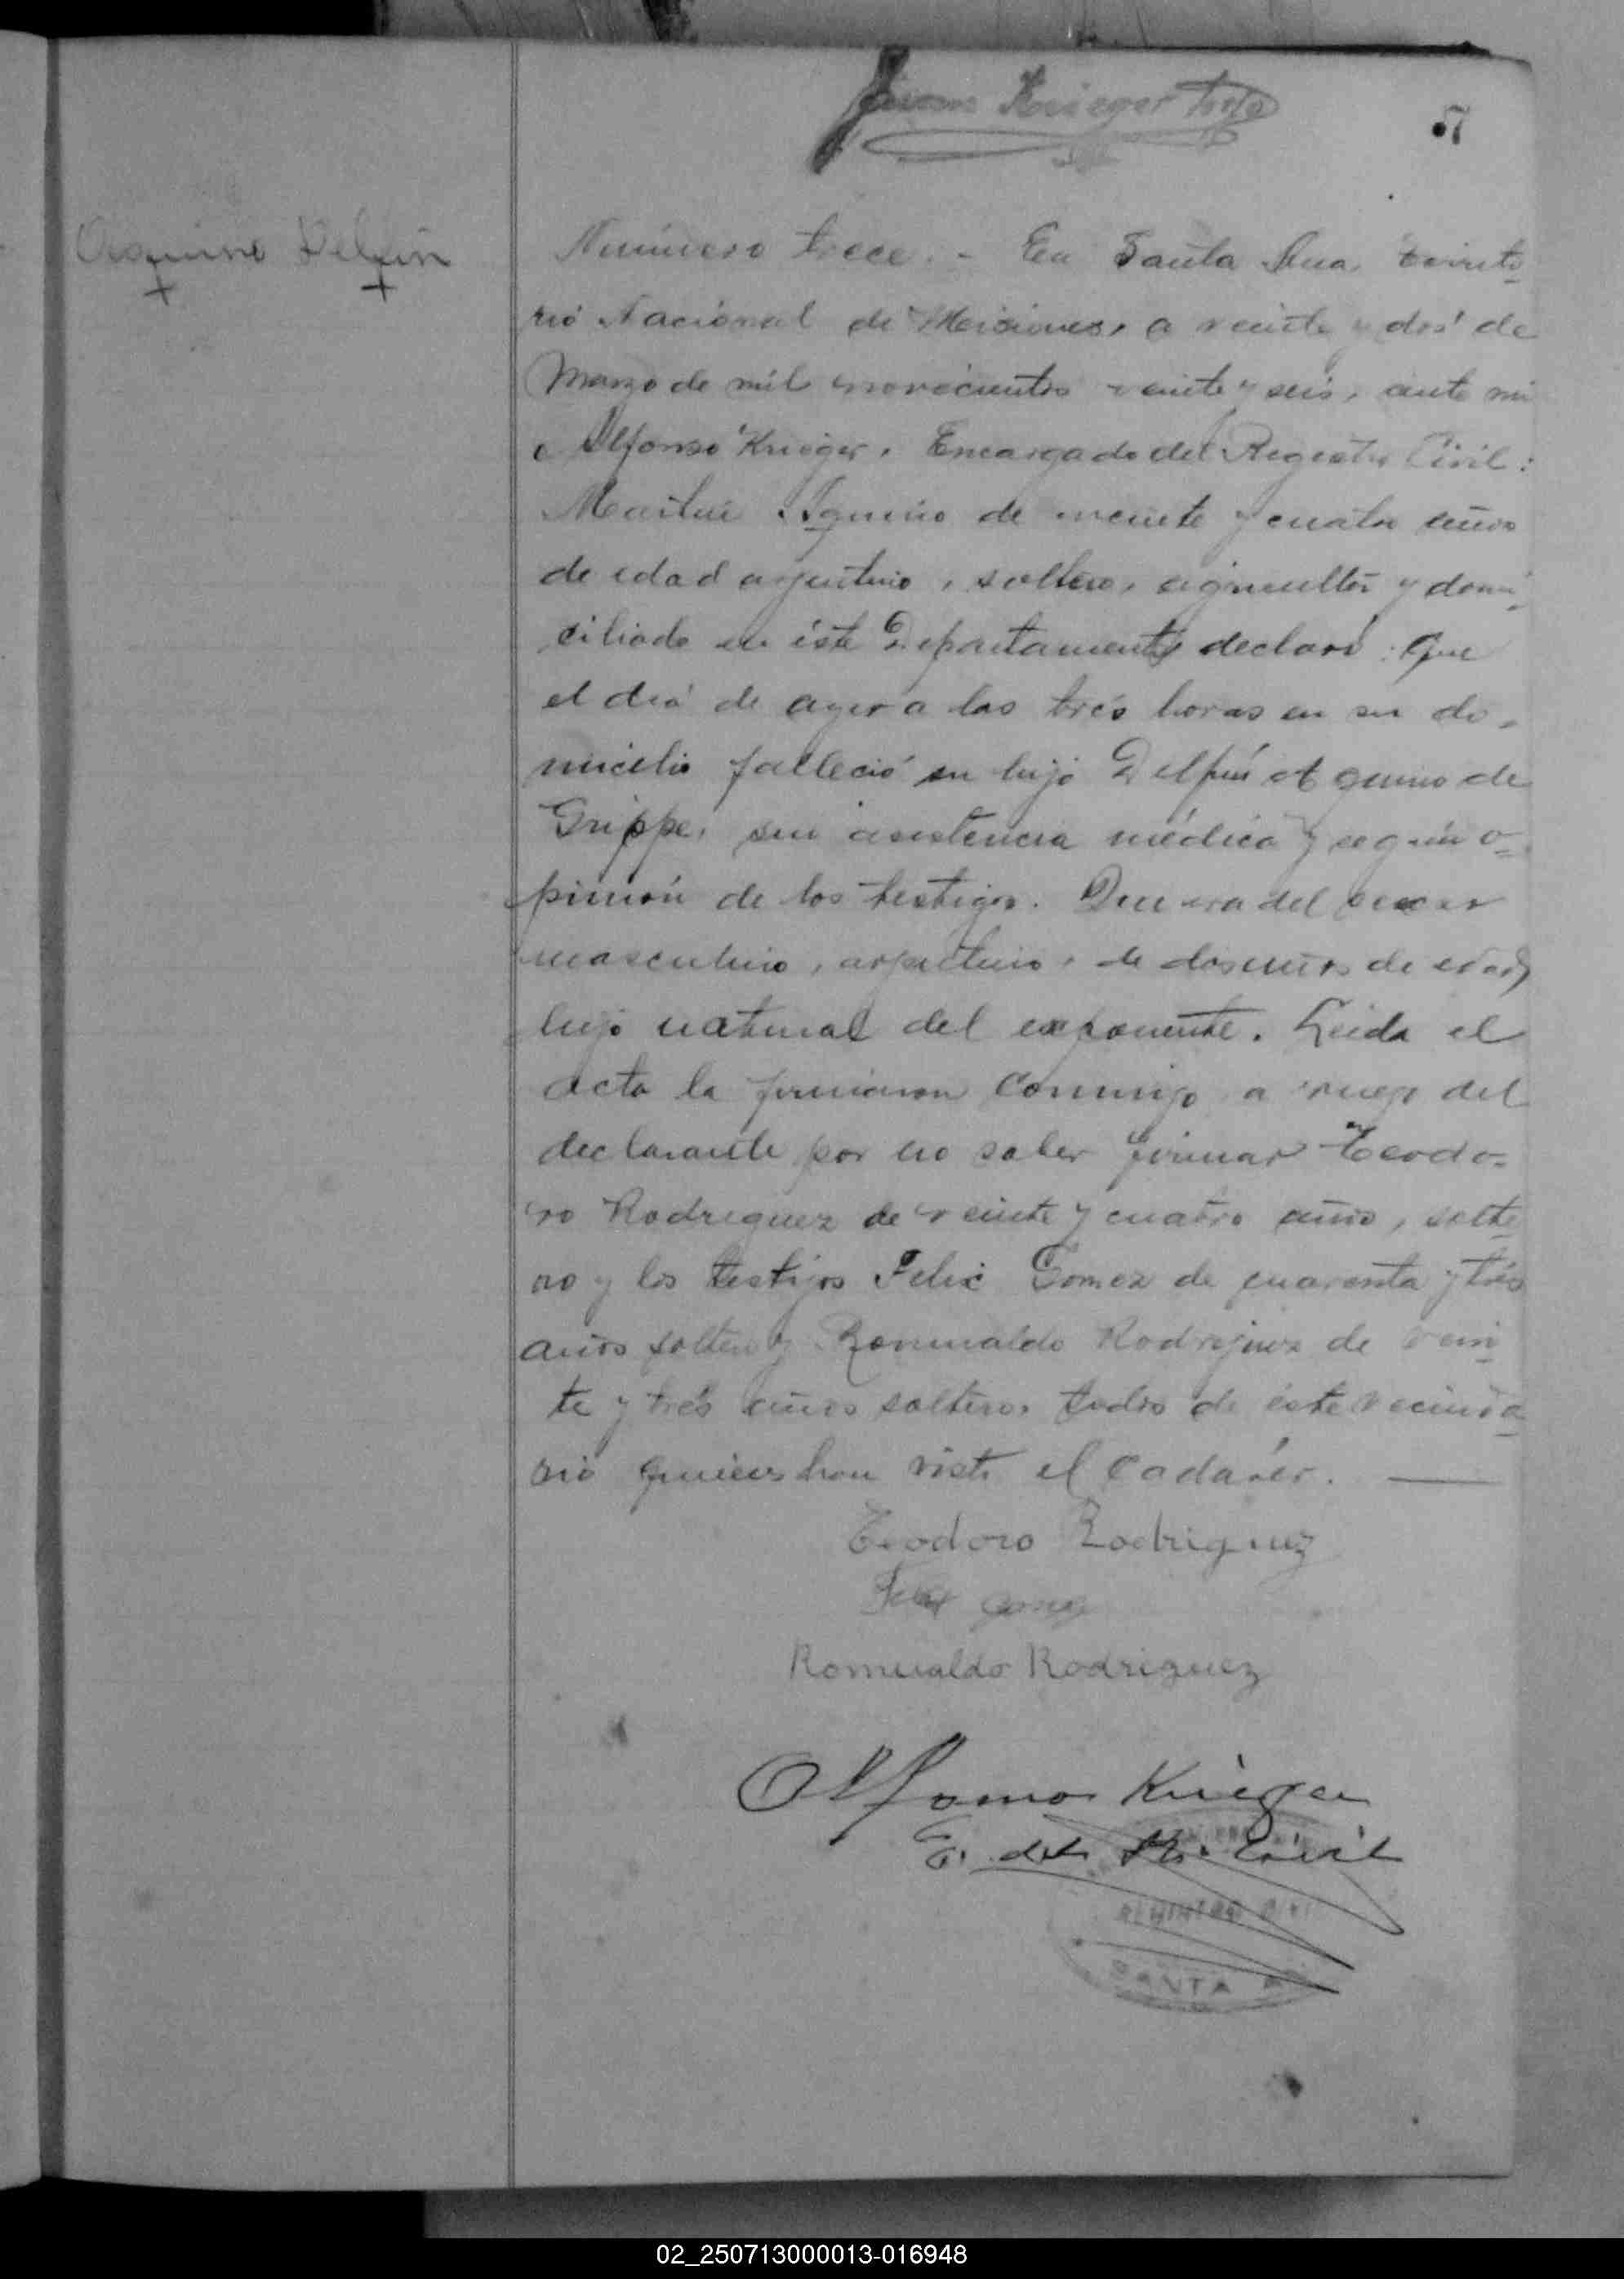 Krieger
57
Aquino Delfin
Número trece. - En Santa Ana, territo-
rio Nacional de Misiones, a veinte y dos de
Marzo de mil novecientos veinte y seis, ante mi
Alfonso Krieger, Encargado del Registro Civil:
Martin Aquino de veinte y cuatro años
de edad argentino, soltero, agricultor y domi-
ciliado en éste Departamento declaró: Que
el diá de ayer a las trés horas en su do-
micilio falleció su hijo Delfin Aquino de
Grippe, sin asistencia médica y según o-
pinión de los testigos. Que era del sexo
masculino, argentino, de dos años de edad,
hijo natural del exponente. Leida el
acta la firmaron conmigo a ruego del
declarante por no saber firmar Teodo-
ro Rodriguez de veinte y cuatro años, solte-
ro y los testigos Felix Gomez de cuarenta y trés
años soltero y Romualdo Rodriguez de vein-
te y trés años soltero, todos de éste vecinda-
rio quienes han visto el cadáver.
Teodoro Rodriguez
Felix Gomez
Romualdo Rodriguez
Alfonso Krieger
E. del R. Civil
REGISTRO CIVIL
SANTA A
02_250713000013-016948